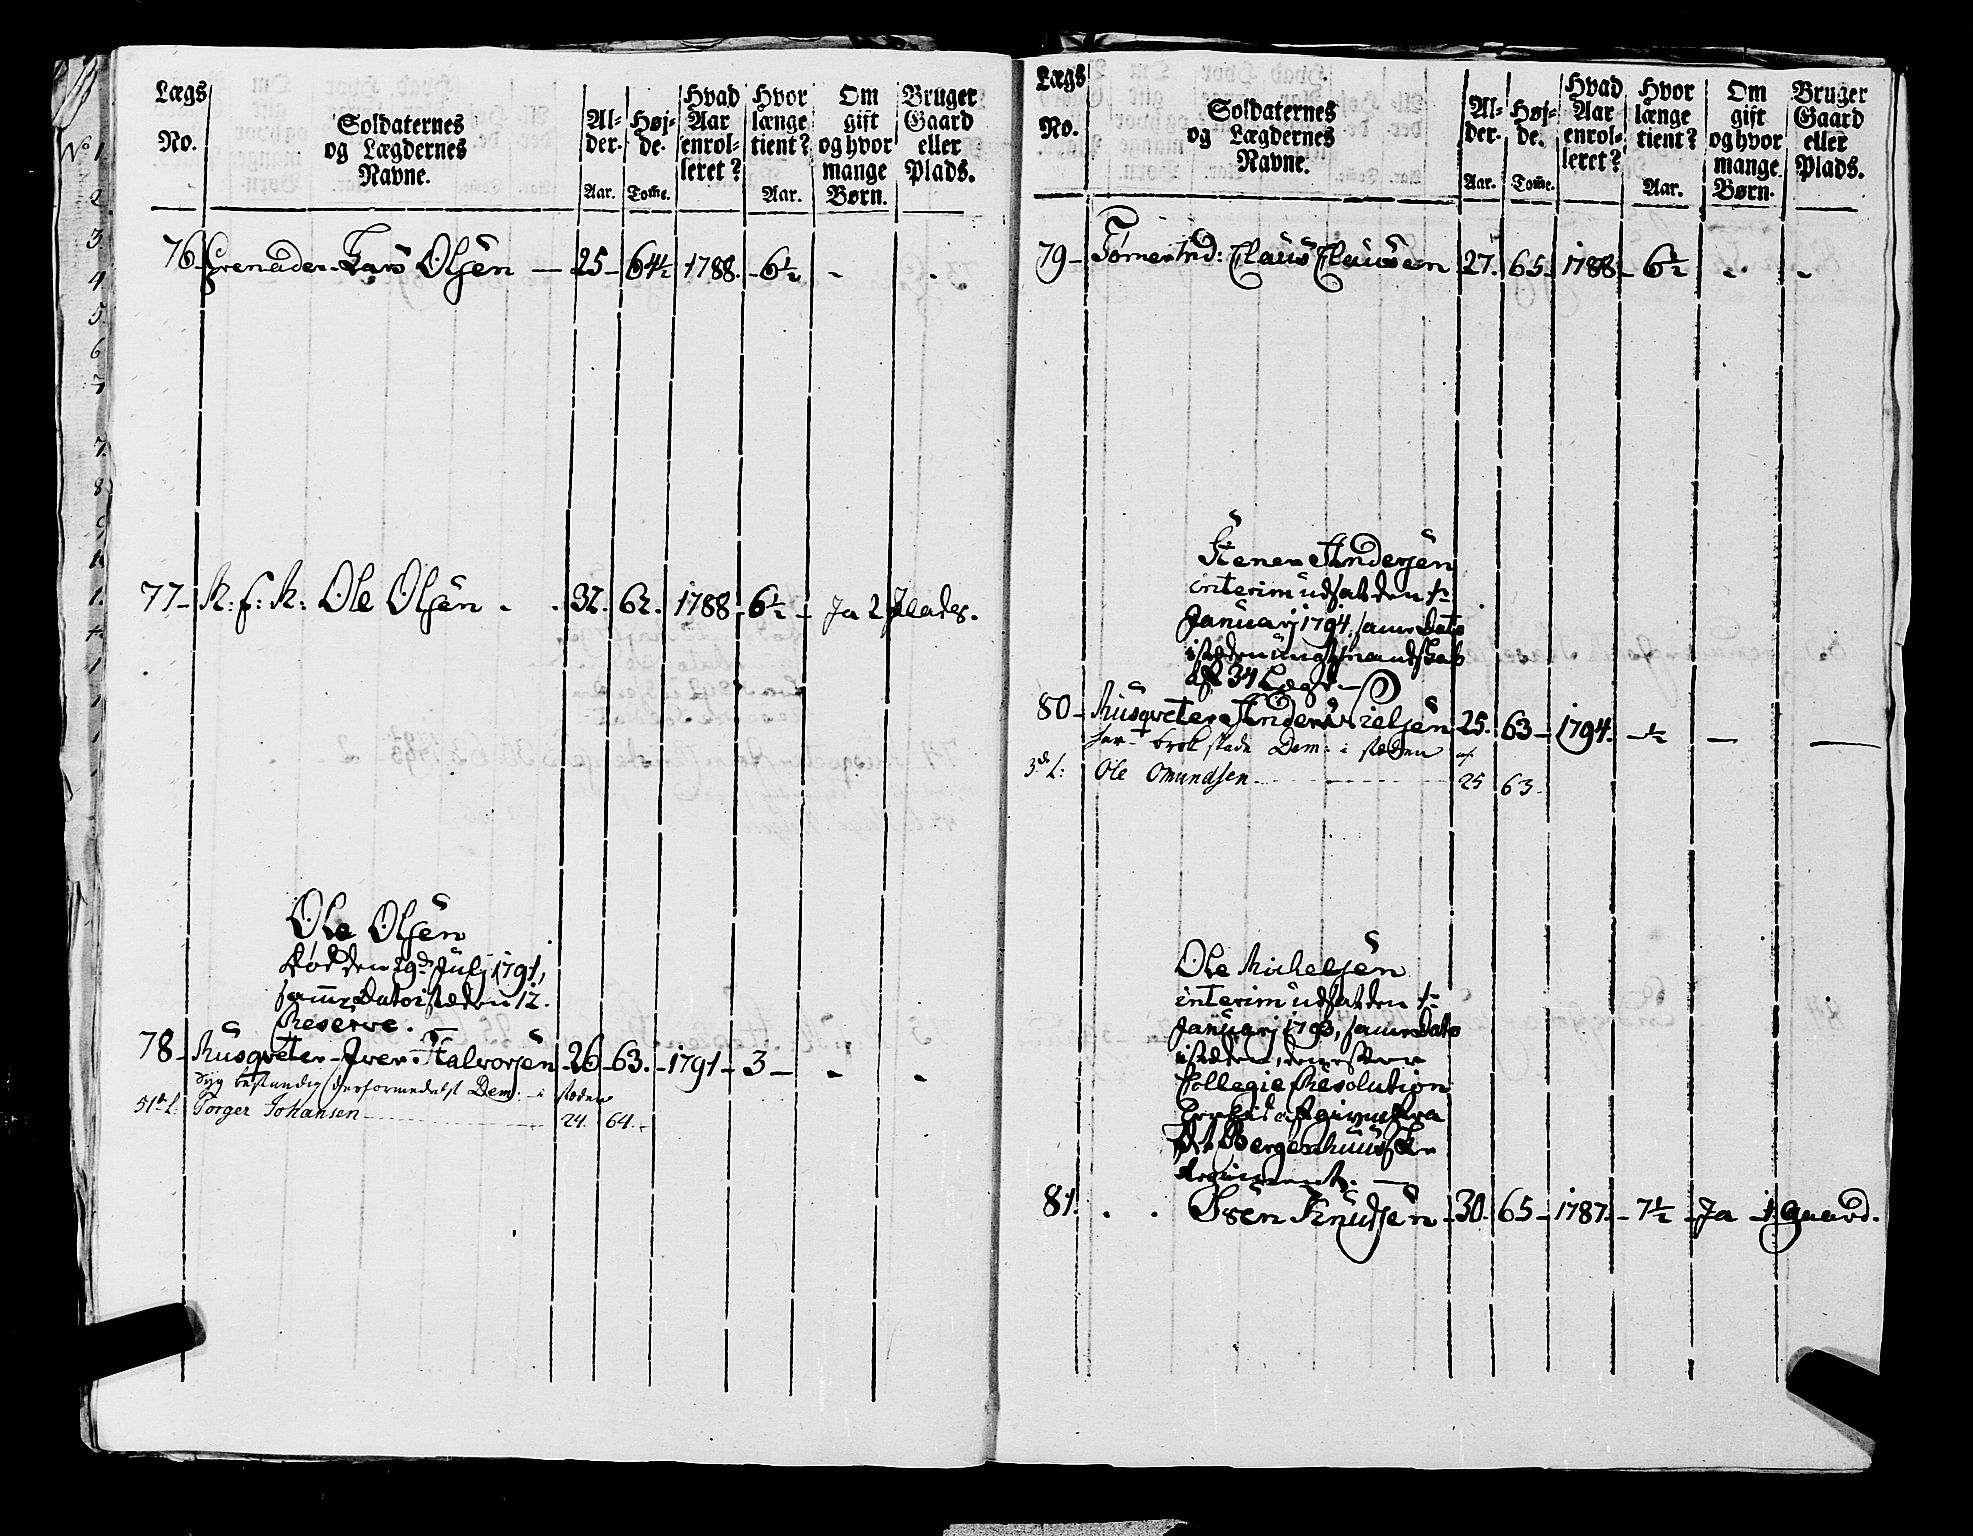 Lægs No.
Soldaternes og Lægdernes Navne.
Al-der. Aar.
Høj-de. Tom̄e.
Hvad Aar enrol-leret?
Hvor længe tient? Aar.
Om gift og hvor mange Børn.
Bruger Gaard eller Plads.
76 Grenadeer Lars Olsen — 25 64½ 1788. 6½ - .
77 M: f: M: Ole Olsen . . 32. 62. 1788 6½ Ja 2 Plads.
Ole Olsen
død den 29de Julj 1791,
samme Dato isteden 12.
Reserve.
78 Musqveter Iver Halvorsen 26 63. 1791 3 - -
Syg bestandig derformedelst Dem: i stæden
51de L: Torger Johansen 24. 64.
Lægs No.
Soldaternes og Lægdernes Navne.
Al-der. Aar.
Høj-de. Tom̄e.
Hvad Aar enrol-leret?
Hvor længe tient? Aar.
Om gift og hvor mange Børn.
Bruger Gaard eller Plads.
79 Claus Clausen 27. 65 1788 6½ - -
Stener Andersen
interim udsat den 1te
Januarj 1794, samme Dato
isteden ungt mandskab
af 34 Lægd.
80 Musqveter Anders Nielsen 25. 63 1794. ½ — —
har brok skade Dem: i stæden af
3de L: Ole Omundsen 25 63
Ole Michelsen
interim udsat den 1te
Januarj 1793, samme Dato
isteden, efter
Collegie Resolution
afgiven fra
det Bergenhuusiske
Regiment. —
81. . . Iven Knudsen 30. 65 1787. 7½ Ja 1. gaard.